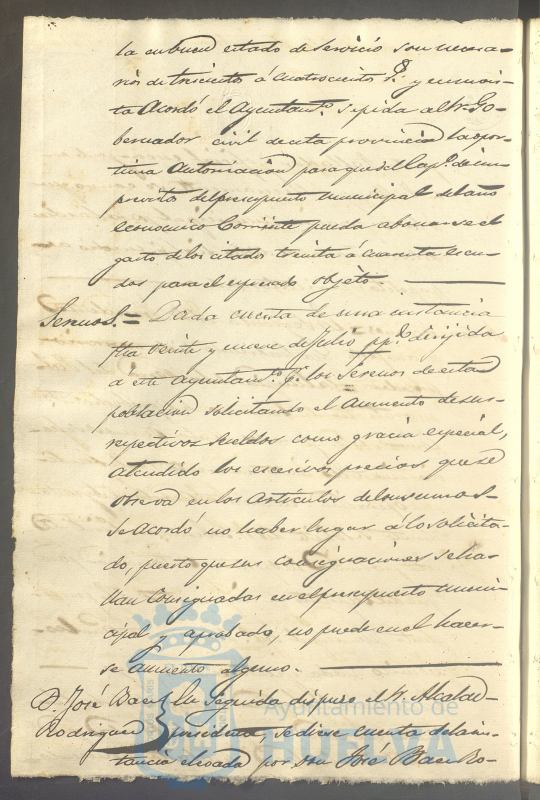 la en buen estado de servicio son necesa-
rios de treciento á cuatrociento r.s y en vis-
ta Acordó el Ayuntam.to se pida al Sr. Go-
bernador civil de esta provincia la opor-
tuna Autorizacion para que del Cap.o de im-
previstos del presupuesto municipal del año
economico Corriente pueda abonarse el
gasto de los citados treinta á cuarenta escu-
dos para el espresado objeto.
Serenos.= Dada cuenta de una instancia
fha veinte y nueve de Julio pp.do dirijida
á este Ayuntam.to p.r los Serenos de esta
poblacion solicitando el Aumento de sus
respectivos sueldos como gracia especial,
atendido los escesivos precios que se
observa en los Artículos de Consumos
se Acordó no haber lugar á lo solicita-
do, puesto que sus consignaciones se ha-
llan Consignadas en el presupuesto muni-
cipal y aprobado, no puede en el hacer-
se aumento alguno.
D. José Baez En Seguida dispuso el Sr. Alcalde
Rodriguez presidente, se diese cuenta de la ins-
tancia elevada por don José Baez Ro-
Ayuntamiento de
HUELVA